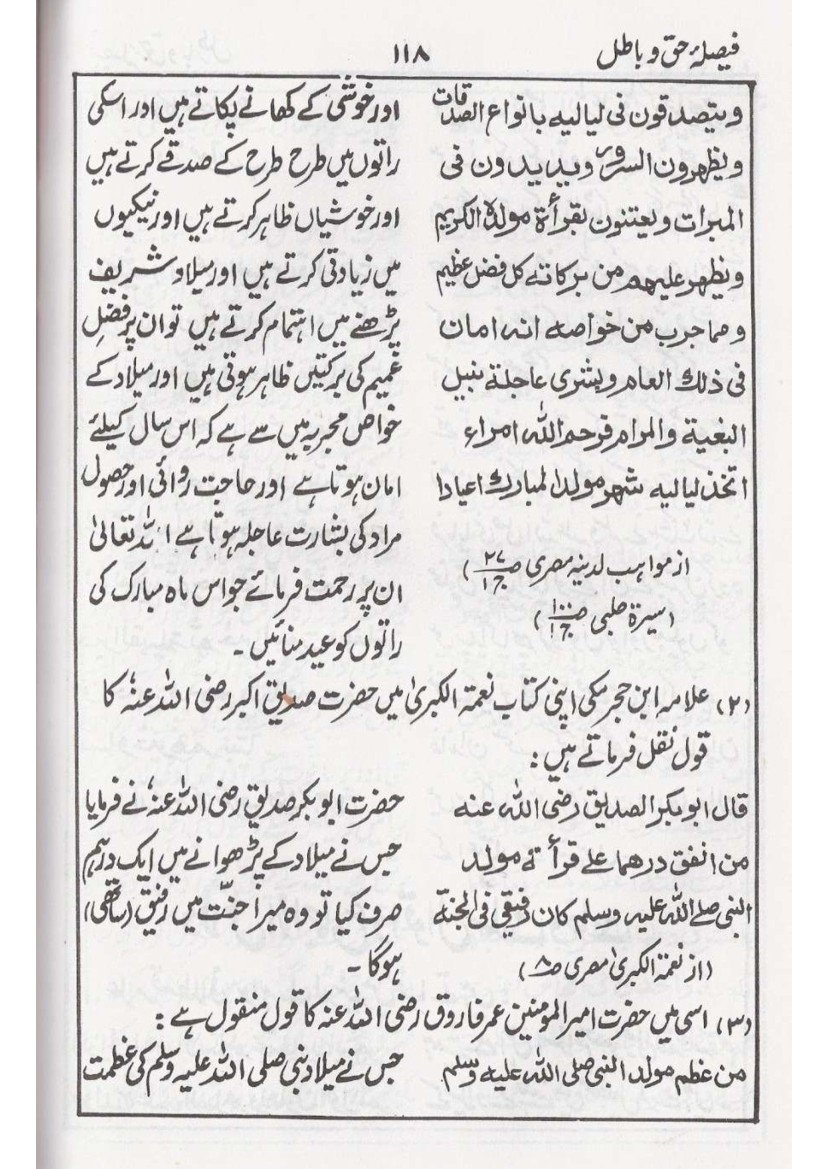 فیصلۂ حق و باطل
۱۱۸
ویتصدقون فی لیالیہ بانواع الصدقات
ویظھرون السرور ویدیدون فی
المبرات ویعتنون بقرأۃ مولدہ الکریم
ویظھر علیھم من برکاتہ کل فضل عظیم
ومما جرب من خواصہ انہ امان
فی ذلک العام وبشری عاجلۃ بنیل
البغیۃ والمرام فرحم اللہ امراء
اتخذ لیالیہ شھر مولد المبارک اعیادا
ازمواہب لدنیہ مصری صـ۲۷ ج۱)
(سیرۃ حلبی صـ۱۰۰ ج۱)
اور خوشی کے کھانے پکاتے ہیں اور اسکی
راتوں میں طرح طرح کے صدقے کرتے ہیں
اور خوشیاں ظاہر کرتے ہیں اور نیکیوں
میں زیادتی کرتے ہیں اور میلاد شریف
پڑھنے میں اہتمام کرتے ہیں تو ان پر فضلِ
عمیم کی برکتیں ظاہر ہوتی ہیں اور میلاد کے
خواص مجربہ میں سے ہے کہ اس سال کیلئے
امان ہوتا ہے اور حاجت روائی اور حصول
مراد کی بشارت عاجلہ ہوتا ہے اللہ تعالیٰ
ان پر رحمت فرمائے جو اس ماہ مبارک کی
راتوں کو عید منائیں ۔
(۲) علامہ ابن حجر مکی اپنی کتاب نعمۃ الکبریٰ میں حضرت صدیق اکبر رضی اللہ عنہٗ کا
قول نقل فرماتے ہیں :
قال ابوبکر الصدیق رضی اللہ عنہ
من انفق درھما علے قرأۃ مولد
النبی صلے اللہ علیہ وسلم کان رفیقی فی الجنۃ
(از نعمۃ الکبریٰ مصری صـ۸)
حضرت ابوبکر صدیق رضی اللہ عنہٗ نے فرمایا
جس نے میلاد کے پڑھوانے میں ایک درہم
صرف کیا تو وہ میرا جنّت میں رفیق (ساتھی)
ہوگا ۔
(۳) اسی میں حضرت امیر المومنین عمر فاروق رضی اللہ عنہ کا قول منقول ہے :
من عظم مولد النبی صلی اللہ علیہ وسلم
جس نے میلاد نبی صلی اللہ علیہ وسلم کی عظمت